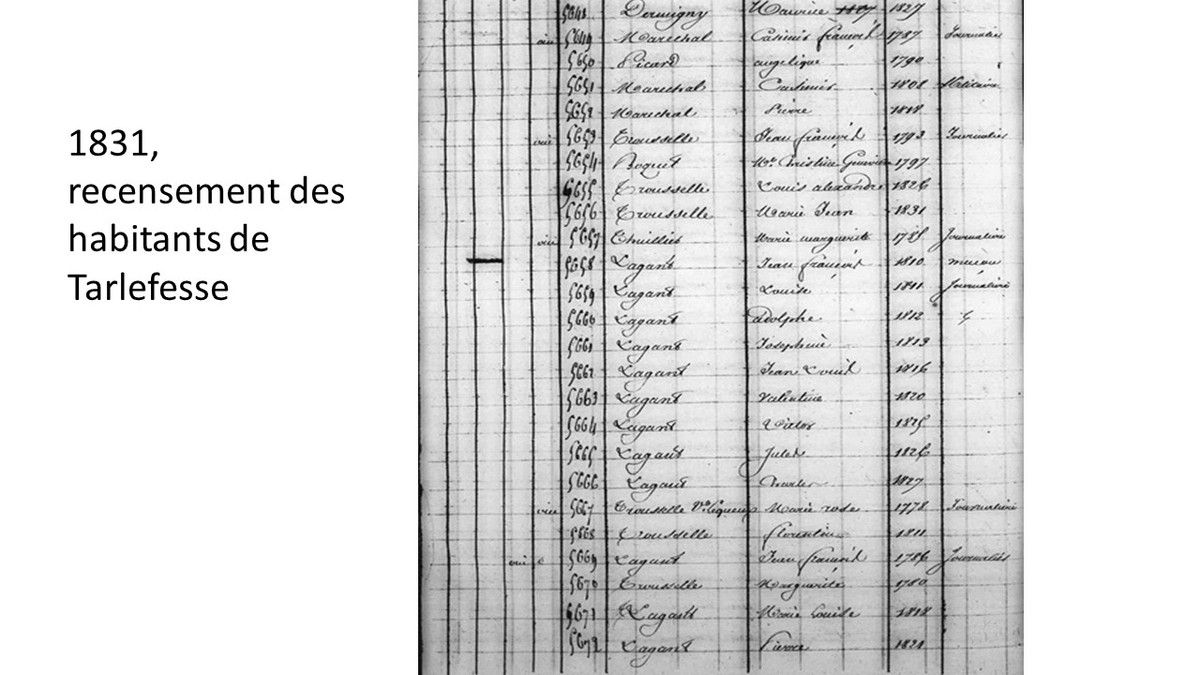 1831,
recensement des
habitants de
Tarlefesse
5648 Dormigny Maurice 1807 1827
oui 5649 Marechal Casimir françois 1787 Journalier
5650 Picard angelique 1790
5651 Marechal Casimir 1808 Militaire
5652 Marechal Pierre 1818
oui 5653 Trousselle Jean françois 1793 Journalier
5654 Boquet Mie Christine Genevieve 1797
5655 Trousselle Louis alexandre 1826
5656 Trousselle Marie Jean 1831
oui 5657 Thuillier Marie marguerite 1785 Journalière
5658 Lagant Jean françois 1810
5659 Lagant Louise 1811 Journalière
5660 Lagant adolphe 1812
5661 Lagant Josephine 1813
5662 Lagant Jean Louis 1816
5663 Lagant Valentine 1820
5664 Lagant Victor 1825
5665 Lagant Jules 1826
5666 Lagant Charles 1827
oui 5667 Trousselle Marie rose 1778 Journalière
5668 Trousselle florentin 1811
oui 5669 Lagant Jean françois 1786 Journalier
5670 Trousselle Marguerite 1780
5671 Lagant Marie Louise 1818
5672 Lagant Pierre 1821